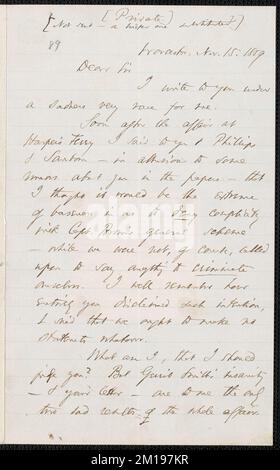 [Private]
[Not sent - a briefer one substituted]
89
Worcester, Nov. 15. 1859
Dear Sir
I write to you under
a sadness very rare for me.
Soon after the affair at
Harper's Ferry I said to you & Phillips
& Sanborn - in allusion to some
rumors about you in the papers - that
I thought it would be the extreme
of baseness in us to deny complicity
with Capt. Brown's general scheme
- while we were not, of course, called
upon to say anything to criminate
ourselves. I well remember how
entirely you disclaimed such intention,
& said that we ought to make no
statements whatever.
What am I, that I should
judge you? But Gerrit Smith's insanity
- & your letter - are to me the only
two sad results of the whole affair.
alamy
Image ID: 2M197KR
www.alamy.com